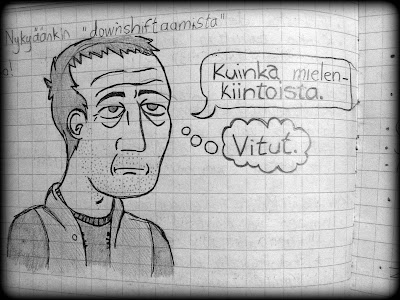 Nykyäänkin "downshiftaamista"
a!
Kuinka mielen-
kiintoista.
Vitut.